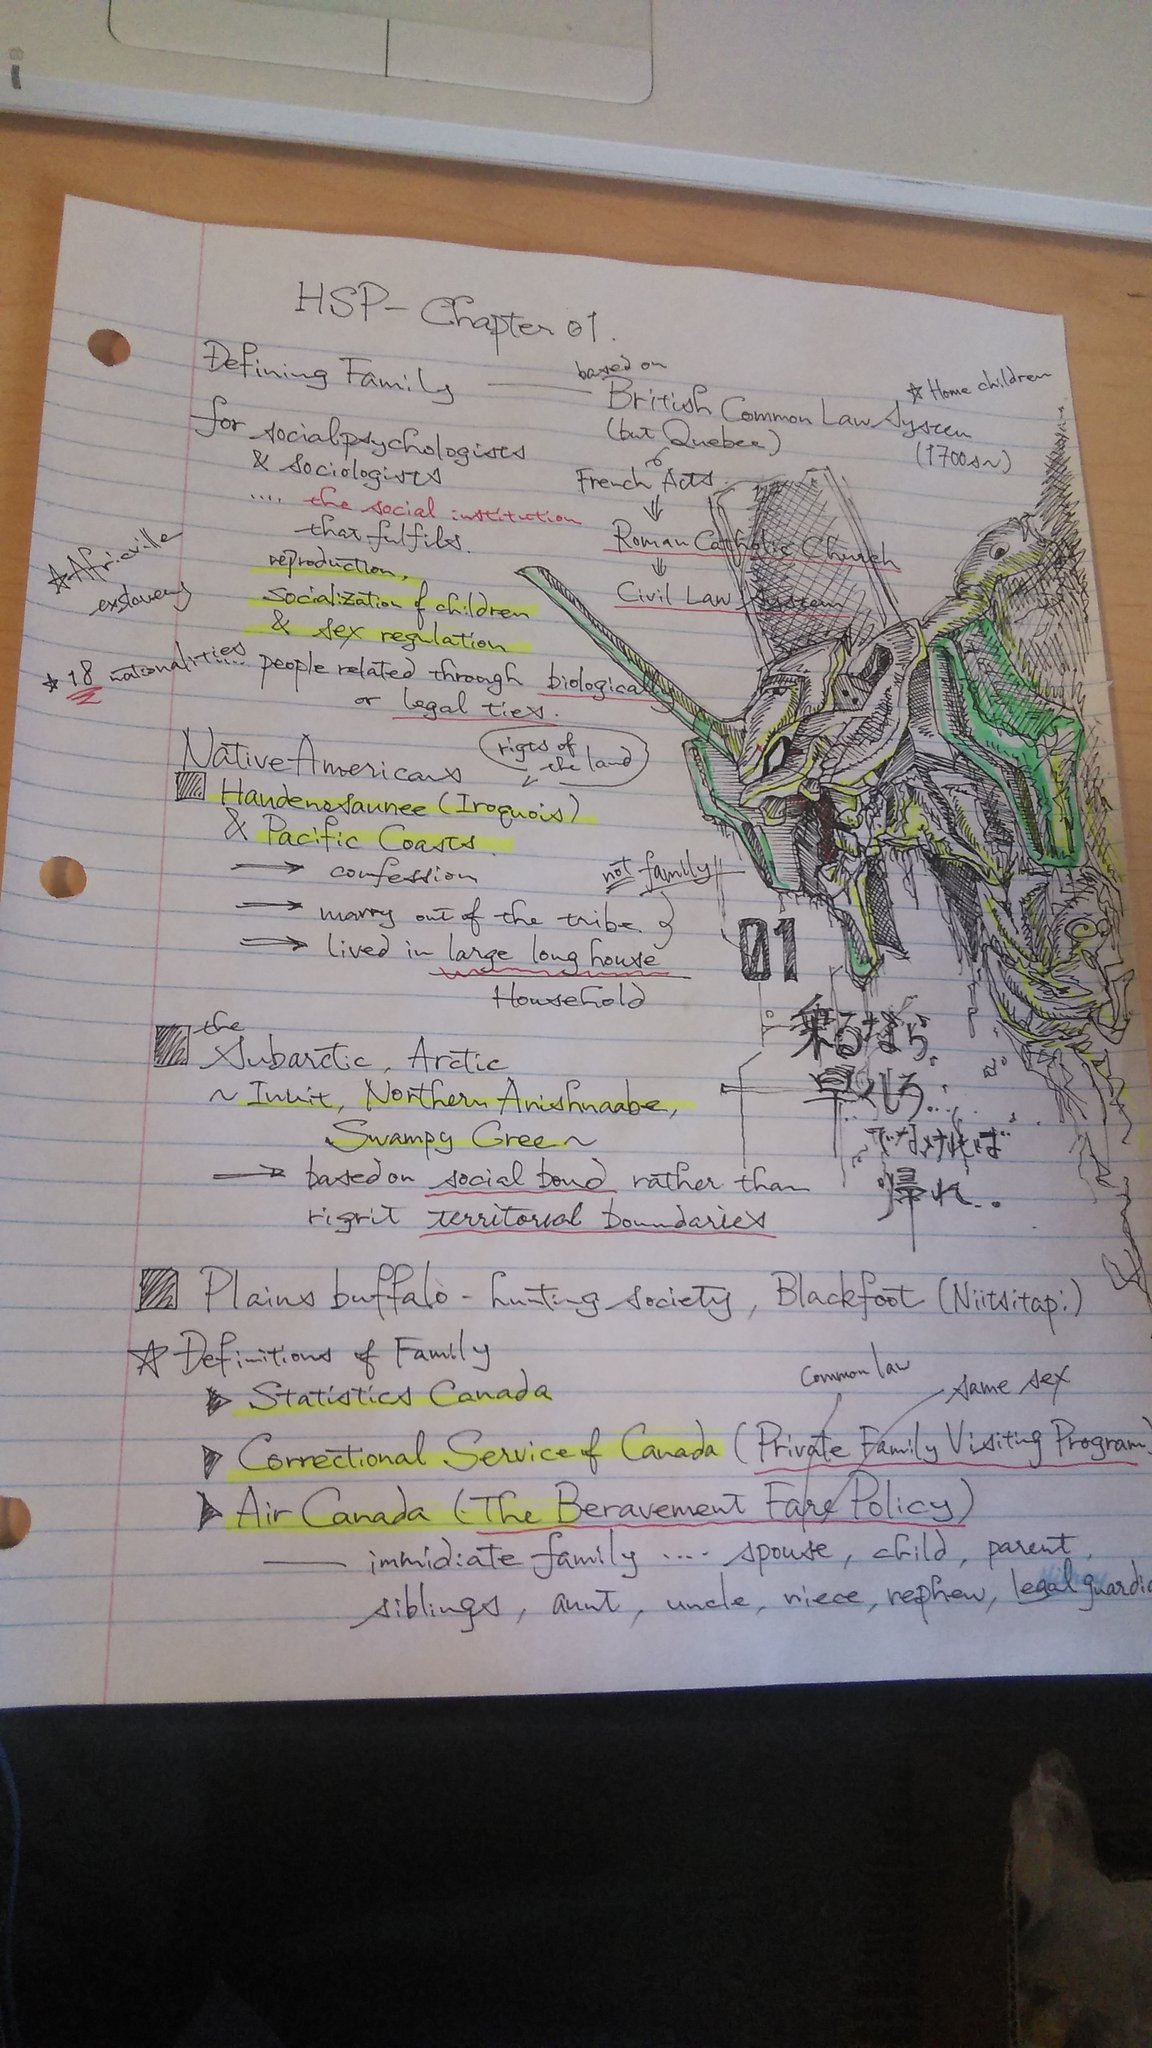 HSP - Chapter 01.
Defining Family — based on
British Common Law System
(but Quebec)
(1700s~)
☆ Home children
for socialpsychologists
& sociologists
.... the social institution
that fulfils.
reproduction,
socialization of children
& sex regulation
people related through biologically
or legal ties.
French Acts
⇓
Roman Catholic Church
⇓
Civil Law System
☆ Africville
exslavery
☆ 18 nationalities....
Native Americans
rigts of
the land
Haudenosaunee (Iroquois)
& Pacific Coasts.
→ confession
→ marry out of the tribe.
→ lived in large long house
Household
not family
01
乗るなら
早くしろ..
でなければ
帰れ..
the
Subarctic, Arctic
~ Inuit, Northern Anishnaabe,
Swampy Cree ~
→ based on social bond rather than
rigrit territorial boundaries
Plains buffalo - hunting society, Blackfoot (Niitsitapi)
☆ Definitions of Family
▶ Statistics Canada
common law
same sex
▶ Correctional Service of Canada (Private Family Visiting Program)
▶ Air Canada (The Beravement Fare Policy)
— immidiate family .... spouse, child, parent,
siblings, aunt, uncle, niece, nephew, legal guardia